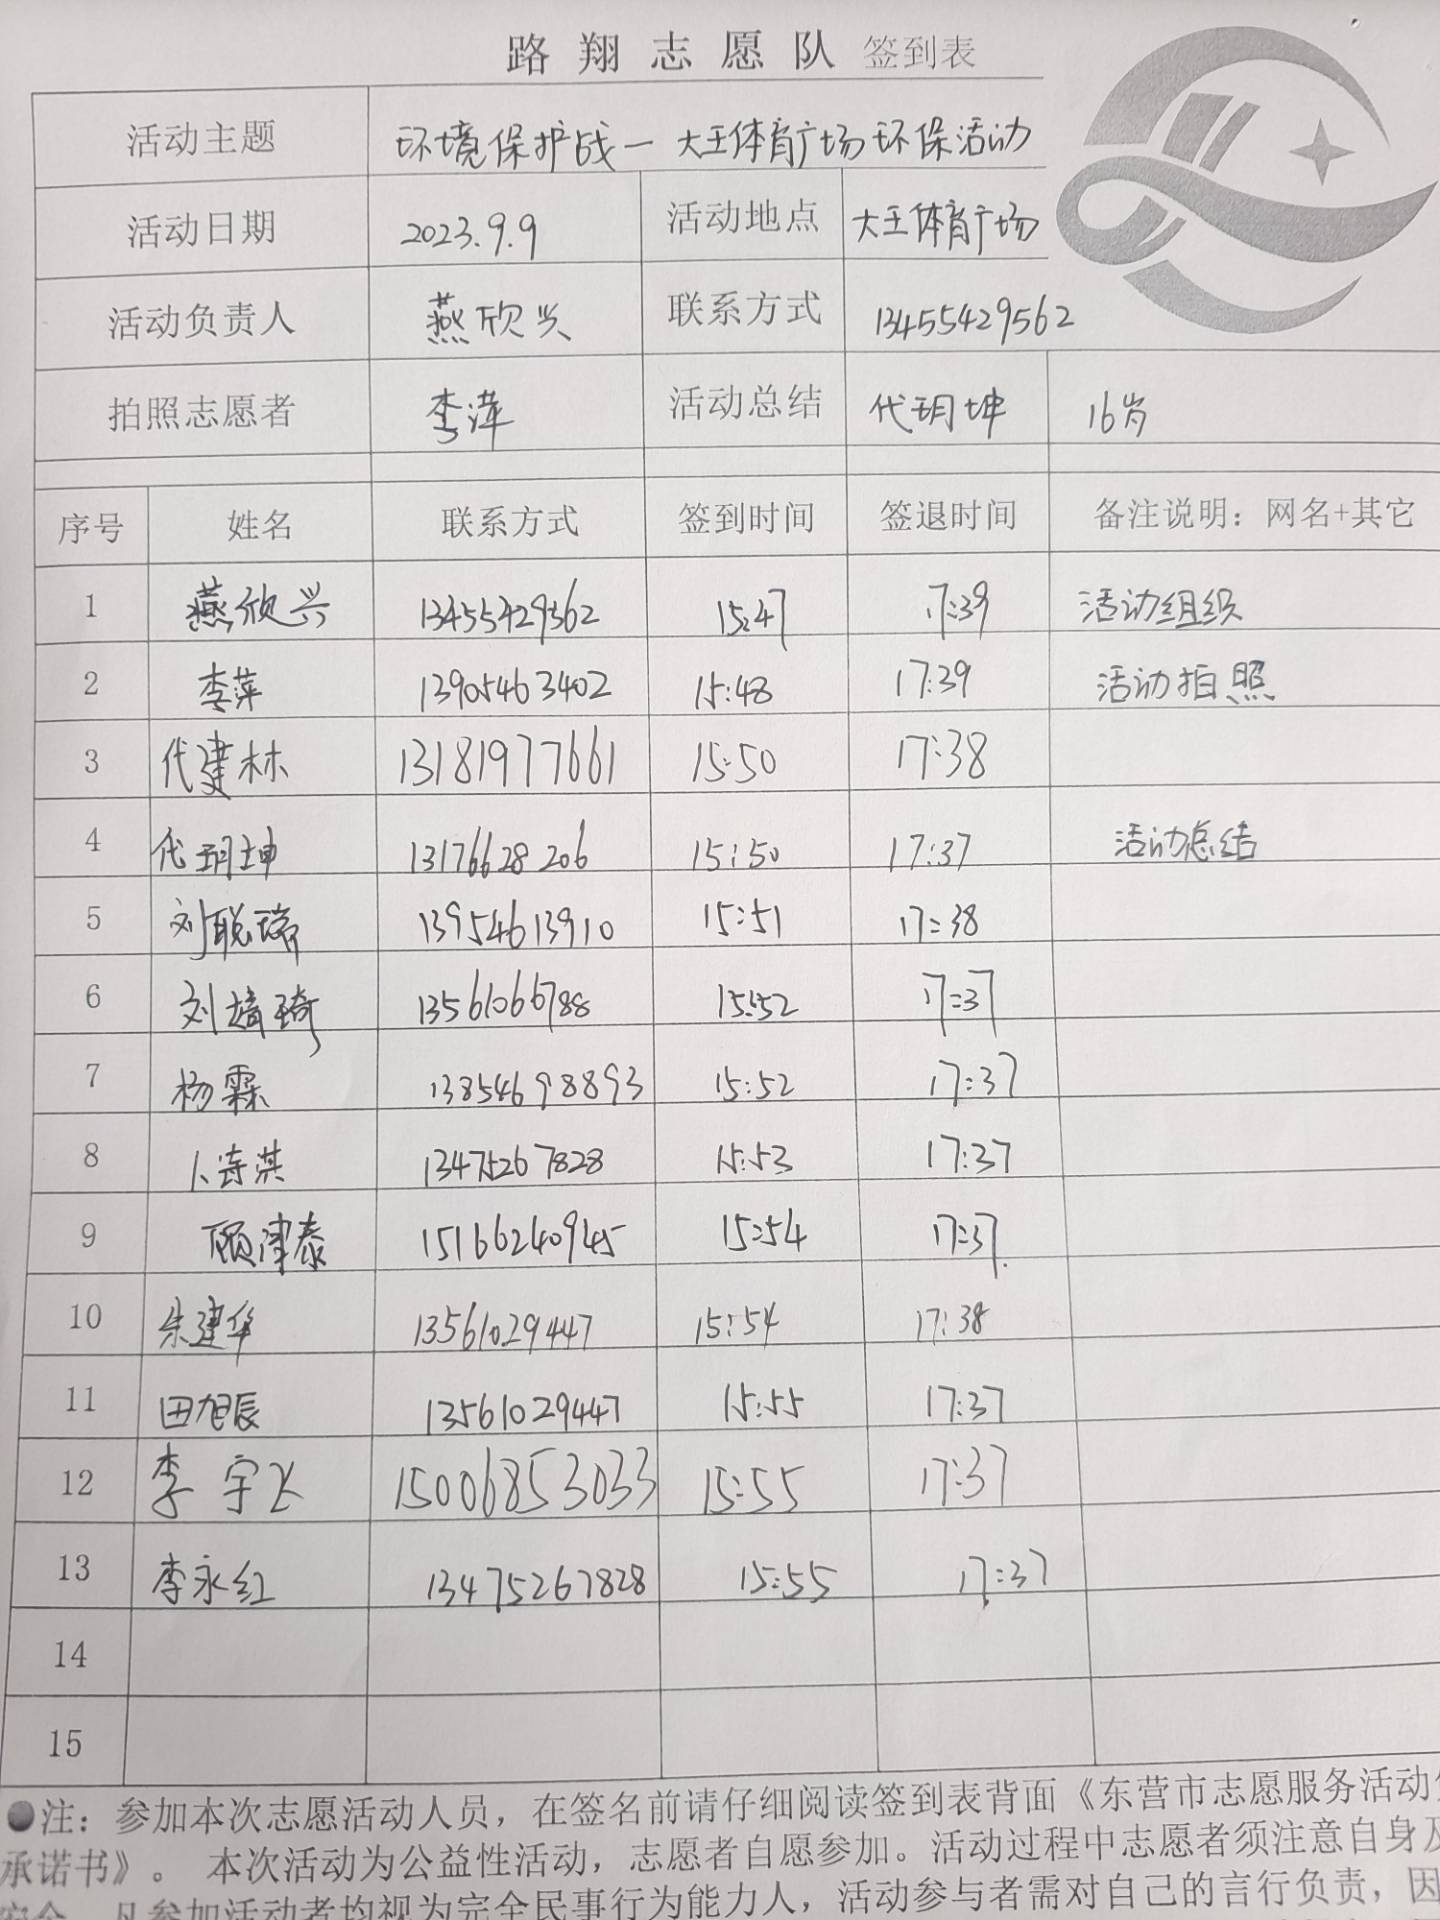 路翔志愿队 签到表
活动主题 环境保护战一大王体育广场环保活动
活动日期 2023.9.9 活动地点 大王体育广场
活动负责人 燕欣兴 联系方式 13455429562
拍照志愿者 李萍 活动总结 代玥坤 16岁
序号 姓名 联系方式 签到时间 签退时间 备注说明：网名+其它
1 燕欣兴 13455429562 15:47 17:39 活动组织
2 李萍 13905463402 15:48 17:39 活动拍照
3 代建林 13181977661 15:50 17:38
4 代玥坤 13176628206 15:50 17:37 活动总结
5 刘聪瑞 13954613910 15:51 17:38
6 刘婧琦 13561066788 15:52 17:37
7 杨霖 13854698893 15:52 17:37
8 13475267828 15:53 17:37
9 顾津泰 15166240945 15:54 17:37
10 朱建华 13561029447 15:54 17:38
11 田旭辰 13561029447 15:55 17:37
12 李宇飞 15006853033 15:55 17:37
13 李永红 13475267828 15:55 17:37
14
15
●注：参加本次志愿活动人员，在签名前请仔细阅读签到表背面《东营市志愿服务活动
承诺书》。 本次活动为公益性活动，志愿者自愿参加。活动过程中志愿者须注意自身及
安全。凡参加活动者均视为完全民事行为能力人，活动参与者需对自己的言行负责，因